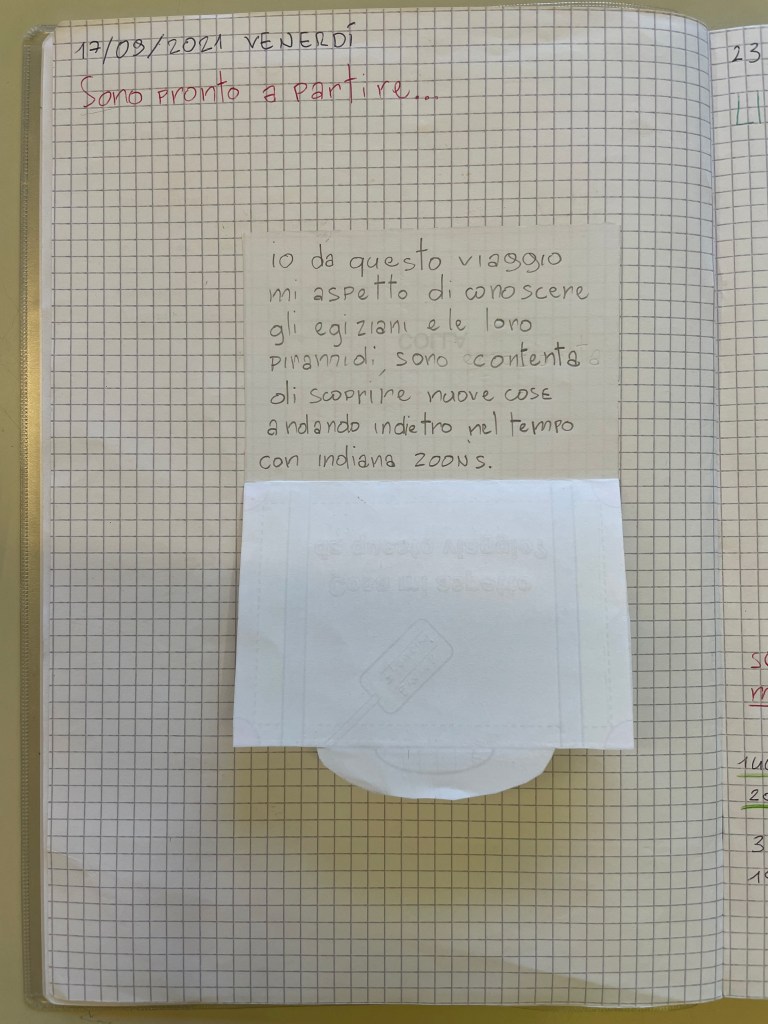 17/09/2021 VENERDÍ
Sono pronto a partire...
io da questo viaggio
mi aspetto di conoscere
gli egiziani e le loro
piramidi, sono contenta
di scoprire nuove cose
andando indietro nel tempo
con indiana zoons.
23
LI